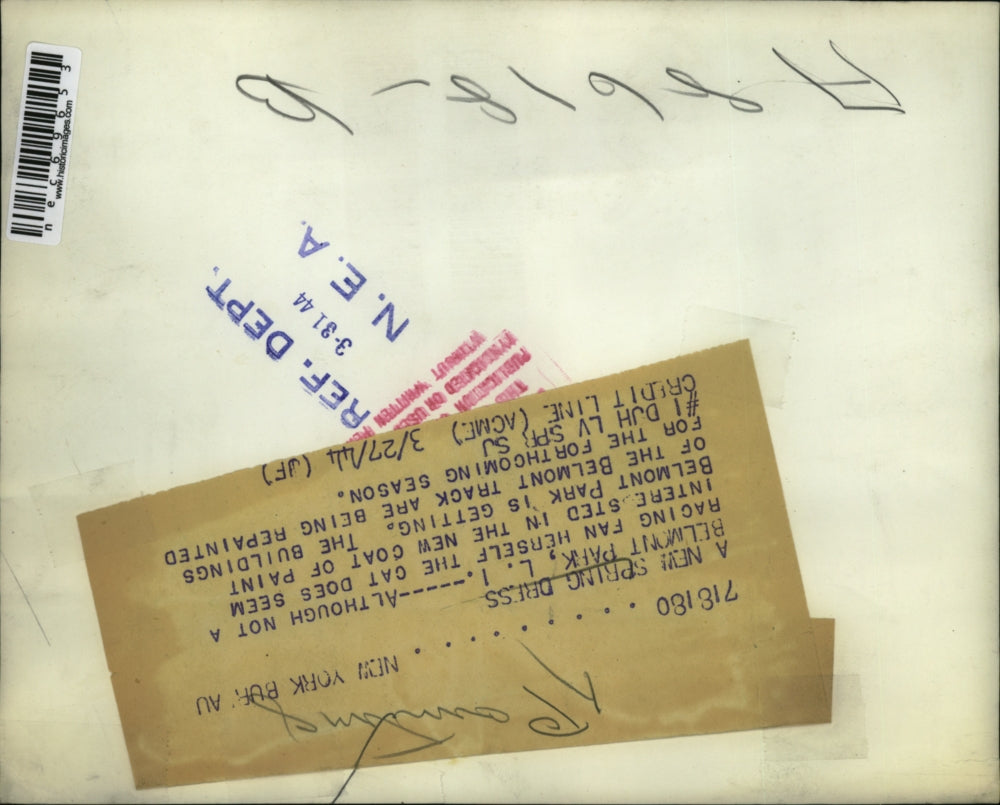 718180 . . . . . . . . . NEW YORK BUR AU
A NEW SPRING DRESS
BELMONT PARK, L. I.-----ALTHOUGH NOT A
RACING FAN HERSELF THE CAT DOES SEEM
INTERESTED IN THE NEW COAT OF PAINT
BELMONT PARK IS GETTING. THE BUILDINGS
OF THE BELMONT TRACK ARE BEING REPAINTED
FOR THE FORTHCOMING SEASON.
#1 DJH LV SPR SJ
CREDIT LINE (ACME) 3/27/44 (JF)
THIS
PUBLICATION
SYNDICATED OR USED
WITHOUT WRITTEN
REF. DEPT.
3-31 44
N. E. A.
nec69653
www.historicimages.com